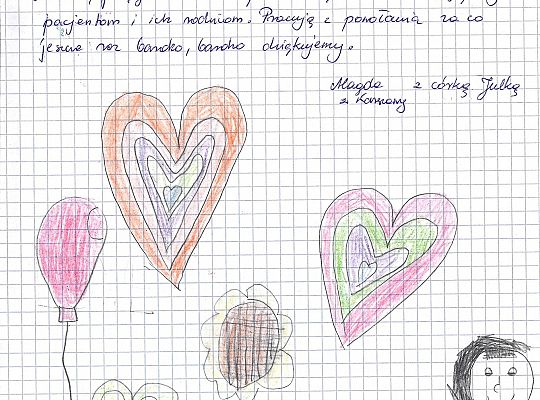 pacjentom i ich rodinom. Pracują z powołania za co
jeszcze raz bardzo, bardzo dziękujemy.
Magda z córką Julką